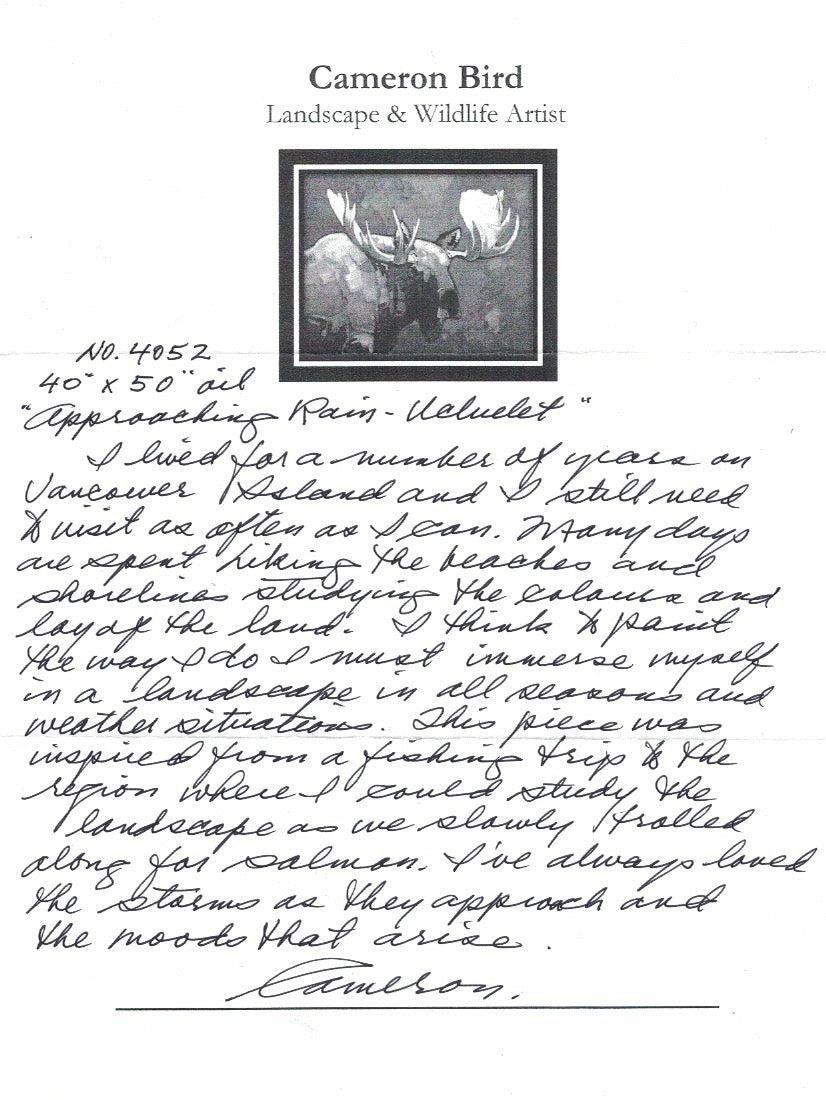 Cameron Bird
Landscape & Wildlife Artist
NO. 4052
40" x 50" oil
"Approaching Rain - Ucluelet"
I lived for a number of years on
Vancouver Island and I still need
to visit as often as I can. Many days
are spent hiking the beaches and
shorelines studying the colours and
lay of the land. I think to paint
the way I do I must immerse myself
in a landscape in all seasons and
weather situations. This piece was
inspired from a fishing trip to the
region where I could study the
landscape as we slowly trolled
along for salmon. I've always loved
the storms as they approach and
the moods that arise.
Cameron.